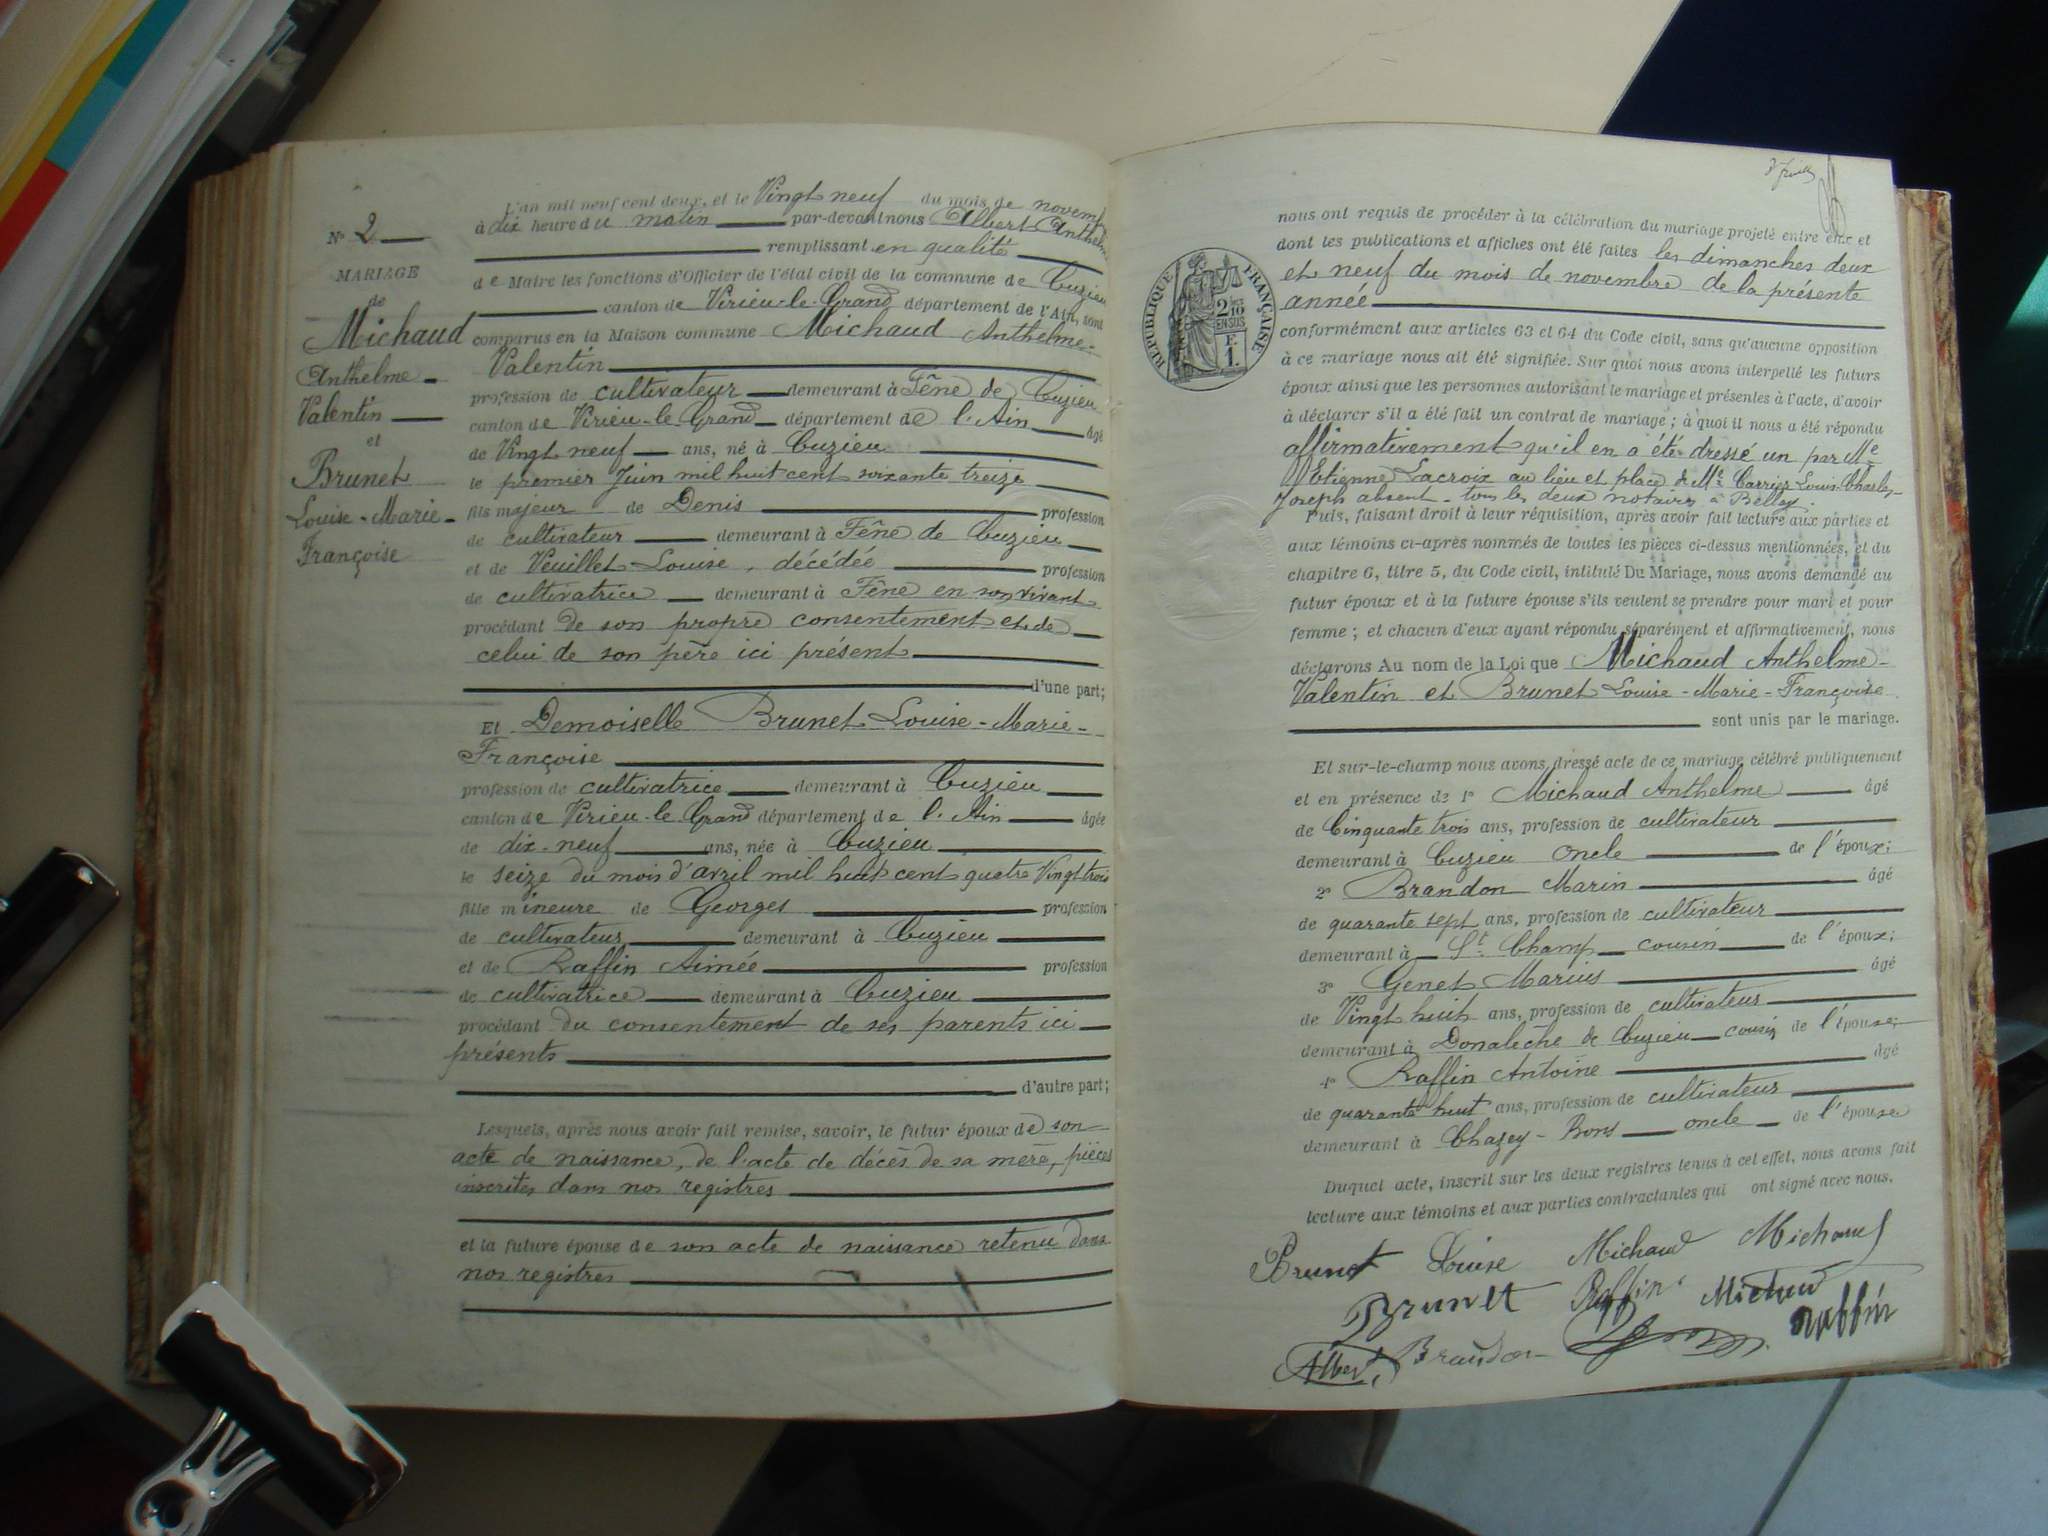 L'an mil neuf cent deux, et le Vingt neuf du mois de novemb
à dix heure du matin par-devant nous Albert Anthelm
remplissant en qualité
de Maire les fonctions d'Officier de l'état civil de la commune de Cuzieu
canton de Virieu-le-Grand département de l'Ain, sont
comparus en la Maison commune Michaud Anthelme-
Valentin
profession de cultivateur demeurant à Fêne de Cuzieu
canton de Virieu-le-Grand département de l'Ain âgé
de Vingt neuf ans, né à Cuzieu
le premier Juin mil huit cent soixante treize
fils majeur de Denis profession
de cultivateur demeurant à Fêne de Cuzieu
et de Veuillet Louise, décédée profession
de cultivatrice demeurant à Fêne en son vivant
procédant de son propre consentement et de
celui de son père ici présent
d'une part;
Et Demoiselle Brunet Louise-Marie-
Françoise
profession de cultivatrice demeurant à Cuzieu
canton de Virieu-le-Grand département de l'Ain âgée
de dix-neuf ans, née à Cuzieu
le seize du mois d'avril mil huit cent quatre Vingt trois
fille mineure de Georges profession
de cultivateur demeurant à Cuzieu
et de Raffin Aimée profession
de cultivatrice demeurant à Cuzieu
procédant du consentement de ses parents ici
présents
d'autre part;
Lesquels, après nous avoir fait remise, savoir, le futur époux de son
acte de naissance, de l'acte de décès de sa mère, pièces
inscrites dans nos registres
et la future épouse de son acte de naissance retenu dans
nos registres
No 2
MARIAGE
de
Michaud
Anthelme
Valentin
et
Brunet
Louise-Marie-
Françoise
nous ont requis de procéder à la célébration du mariage projeté entre eux et
dont les publications et affiches ont été faites les dimanches deux
et neuf du mois de novembre de la présente
année
conformément aux articles 63 et 64 du Code civil, sans qu'aucune opposition
à ce mariage nous ait été signifiée. Sur quoi nous avons interpellé les futurs
époux ainsi que les personnes autorisant le mariage et présentes à l'acte, d'avoir
à déclarer s'il a été fait un contrat de mariage; à quoi il nous a été répondu
affirmativement qu'il en a été dressé un par Me
Etienne Lacroix au lieu et place de Me Carrier Louis-Charles-
Joseph absent - tous les deux notaires à Belley.
Puis, faisant droit à leur réquisition, après avoir fait lecture aux parties et
aux témoins ci-après nommés de toutes les pièces ci-dessus mentionnées, et du
chapitre 6, titre 5, du Code civil, intitulé Du Mariage, nous avons demandé au
futur époux et à la future épouse s'ils veulent se prendre pour mari et pour
femme; et chacun d'eux ayant répondu séparément et affirmativement, nous
déclarons Au nom de la Loi que Michaud Anthelme-
Valentin et Brunet Louise-Marie-Françoise
sont unis par le mariage.
Et sur-le-champ nous avons dressé acte de ce mariage célébré publiquement
et en présence de 1º Michaud Anthelme âgé
de Cinquante trois ans, profession de cultivateur
demeurant à Cuzieu oncle de l'époux;
2º Brandon Marin âgé
de quarante sept ans, profession de cultivateur
demeurant à St Champ cousin de l'époux;
3º Genet Marius âgé
de Vingt huit ans, profession de cultivateur
demeurant à Donalèche de Cuzieu cousin de l'épouse;
4º Raffin Antoine âgé
de quarante huit ans, profession de cultivateur
demeurant à Chazey-Bons oncle de l'épouse
Duquel acte, inscrit sur les deux registres tenus à cet effet, nous avons fait
lecture aux témoins et aux parties contractantes qui ont signé avec nous.
Brunet Louise Michaud Michaud
Brunet Raffin Michaud
Albert Brandon Raffin
RÉPUBLIQUE FRANÇAISE
2/10
EN SUS
F.
1.